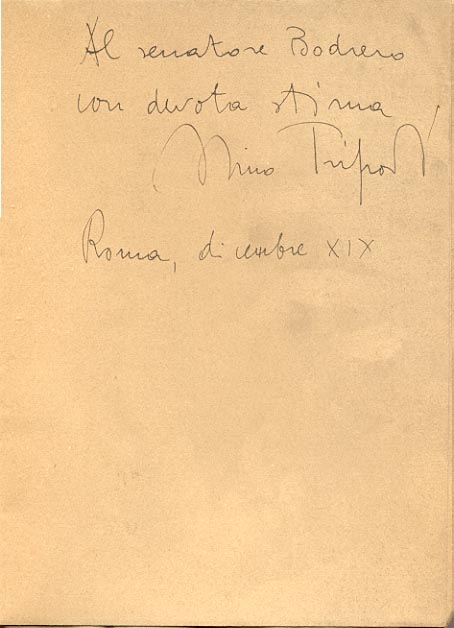 Al senatore Bodrero
con devota stima
Nino Tripodi
Roma, dicembre XIX